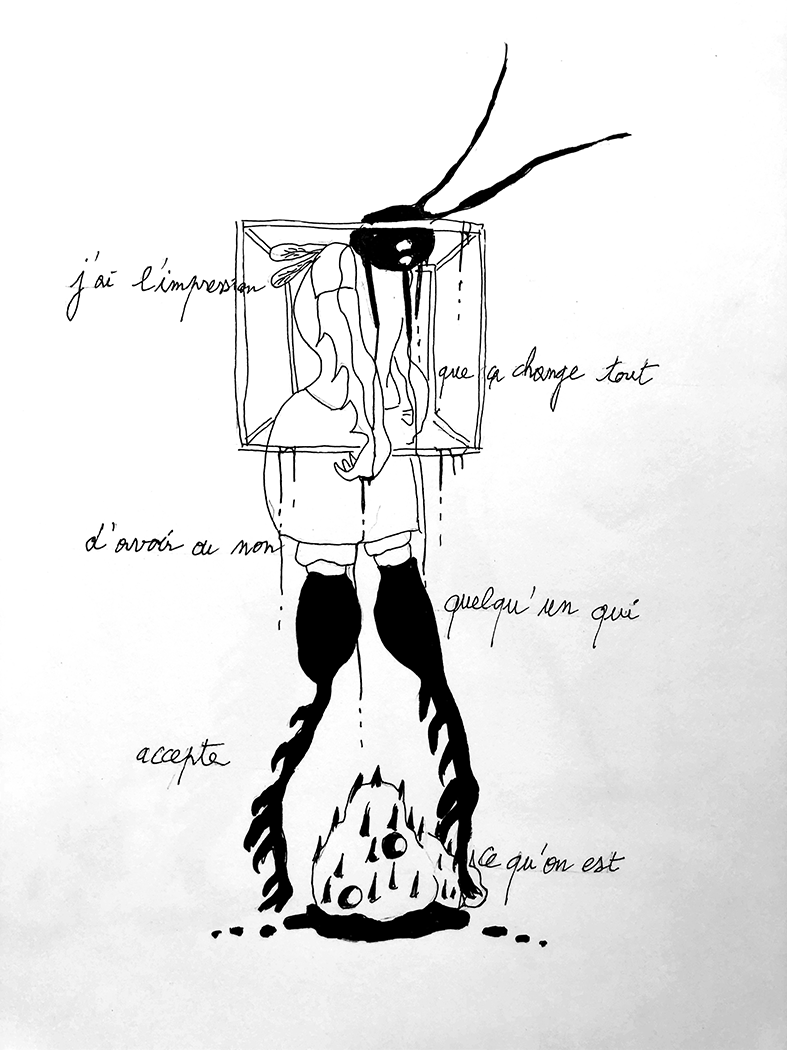 j'ai l'impression
que ça change tout
d'avoir ou non
quelqu'un qui
accepte
ce qu'on est